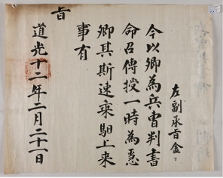 左副承旨金
今以卿爲兵曹判書
命召傳授一時爲急
卿其斯速乘馹上來
事有
旨
道光十二年二月二十一日